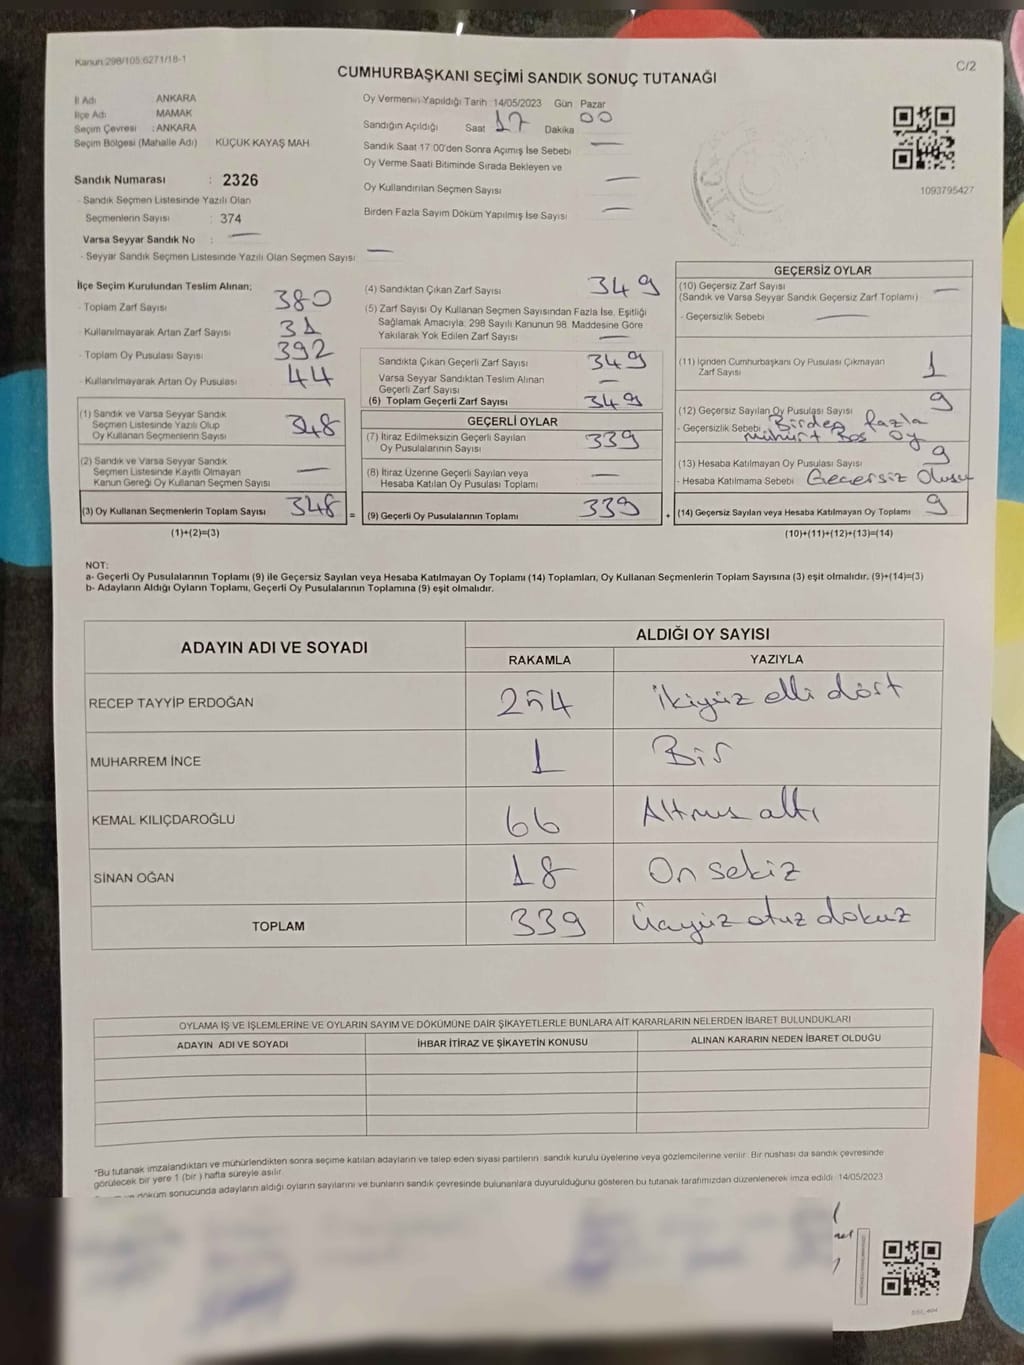 Kanun 298/105;6271/18-1
C/2
CUMHURBAŞKANI SEÇİMİ SANDIK SONUÇ TUTANAĞI
İl Adı ANKARA
İlçe Adı MAMAK
Seçim Çevresi : ANKARA
Seçim Bölgesi (Mahalle Adı) KÜÇÜK KAYAŞ MAH
Sandık Numarası : 2326
- Sandık Seçmen Listesinde Yazılı Olan
Seçmenlerin Sayısı : 374
Varsa Seyyar Sandık No : —
- Seyyar Sandık Seçmen Listesinde Yazılı Olan Seçmen Sayısı —
Oy Vermenin Yapıldığı Tarih :14/05/2023 Gün Pazar
Sandığın Açıldığı Saat 17 Dakika 00
Sandık Saat 17:00'den Sonra Açımış İse Sebebi —
Oy Verme Saati Bitiminde Sırada Bekleyen ve
Oy Kullandırılan Seçmen Sayısı —
Birden Fazla Sayım Döküm Yapılmış İse Sayısı —
T.C.
1093795427
İlçe Seçim Kurulundan Teslim Alınan;
- Toplam Zarf Sayısı 380
- Kullanılmayarak Artan Zarf Sayısı 31
- Toplam Oy Pusulası Sayısı 392
- Kullanılmayarak Artan Oy Pusulası 44
(1) Sandık ve Varsa Seyyar Sandık
Seçmen Listesinde Yazılı Olup
Oy Kullanan Seçmenlerin Sayısı 348
(2) Sandık ve Varsa Seyyar Sandık
Seçmen Listesinde Kayıtlı Olmayan
Kanun Gereği Oy Kullanan Seçmen Sayısı —
(3) Oy Kullanan Seçmenlerin Toplam Sayısı 348 =
(1)+(2)=(3)
(4) Sandıktan Çıkan Zarf Sayısı 349
(5) Zarf Sayısı Oy Kullanan Seçmen Sayısından Fazla İse, Eşitliği
Sağlamak Amacıyla; 298 Sayılı Kanunun 98. Maddesine Göre
Yakılarak Yok Edilen Zarf Sayısı —
Sandıkta Çıkan Geçerli Zarf Sayısı 349
Varsa Seyyar Sandıktan Teslim Alınan
Geçerli Zarf Sayısı —
(6) Toplam Geçerli Zarf Sayısı 349
GEÇERLİ OYLAR
(7) İtiraz Edilmeksizin Geçerli Sayılan
Oy Pusulalarının Sayısı 339
(8) İtiraz Üzerine Geçerli Sayılan veya
Hesaba Katılan Oy Pusulası Toplamı —
(9) Geçerli Oy Pusulalarının Toplamı 339 +
GEÇERSİZ OYLAR
(10) Geçersiz Zarf Sayısı —
(Sandık ve Varsa Seyyar Sandık Geçersiz Zarf Toplamı)
- Geçersizlik Sebebi —
(11) İçinden Cumhurbaşkanı Oy Pusulası Çıkmayan
Zarf Sayısı 1
(12) Geçersiz Sayılan Oy Pusulası Sayısı 9
- Geçersizlik Sebebi Birden fazla
mühürt Boş oy
(13) Hesaba Katılmayan Oy Pusulası Sayısı 9
- Hesaba Katılmama Sebebi Geçersiz Olusu
(14) Geçersiz Sayılan veya Hesaba Katılmayan Oy Toplamı 9
(10)+(11)+(12)+(13)=(14)
NOT:
a- Geçerli Oy Pusulalarının Toplamı (9) ile Geçersiz Sayılan veya Hesaba Katılmayan Oy Toplamı (14) Toplamları, Oy Kullanan Seçmenlerin Toplam Sayısına (3) eşit olmalıdır. (9)+(14)=(3)
b- Adayların Aldığı Oyların Toplamı, Geçerli Oy Pusulalarının Toplamına (9) eşit olmalıdır.
ADAYIN ADI VE SOYADI ALDIĞI OY SAYISI
RAKAMLA YAZIYLA
RECEP TAYYİP ERDOĞAN 254 İkiyüz elli dört
MUHARREM İNCE 1 Bir
KEMAL KILIÇDAROĞLU 66 Altmış altı
SİNAN OĞAN 18 On sekiz
TOPLAM 339 Üçyüz otuz dokuz
OYLAMA İŞ VE İŞLEMLERİNE VE OYLARIN SAYIM VE DÖKÜMÜNE DAİR ŞİKAYETLERLE BUNLARA AİT KARARLARIN NELERDEN İBARET BULUNDUKLARI
ADAYIN ADI VE SOYADI İHBAR İTİRAZ VE ŞİKAYETİN KONUSU ALINAN KARARIN NEDEN İBARET OLDUĞU
*Bu tutanak imzalandıktan ve mühürlendikten sonra seçime katılan adayların ve talep eden siyasi partilerin sandık kurulu üyelerine veya gözlemcilerine verilir. Bir nüshası da sandık çevresinde
görülecek bir yere 1 (bir) hafta süreyle asılır.
döküm sonucunda adayların aldığı oyların sayılarını ve bunların sandık çevresinde bulunanlara duyurulduğunu gösteren bu tutanak tarafımızdan düzenlenerek imza edildi. 14/05/2023